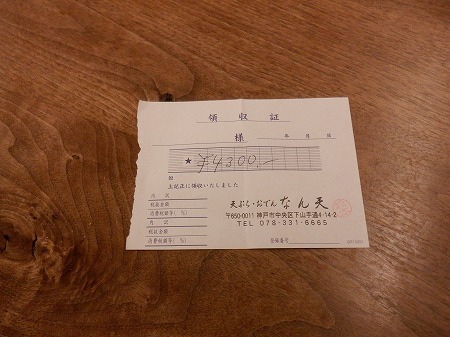 領収証
様 年 月 日
★ ¥4300.-
但
上記正に領収いたしました
内訳
税抜金額
消費税額等( %)
内訳
税抜金額
消費税額等( %)
天ぷら・おでん なん天
〒650-0011 神戸市中央区下山手通4-14-2
TEL 078-331-6665
登録番号